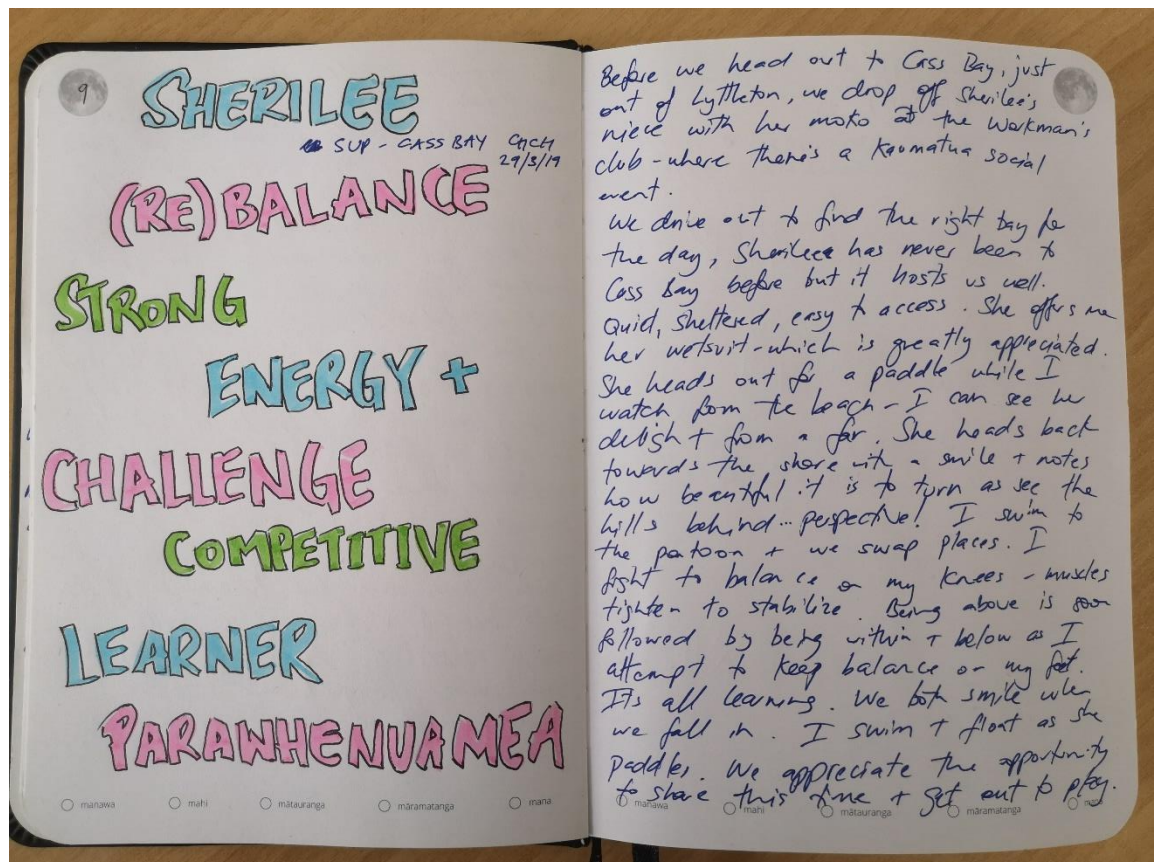 9
SHERILEE
SUP - CASS BAY CHCH
29/3/19
(RE)BALANCE
STRONG
ENERGY +
CHALLENGE
COMPETITIVE
LEARNER
PARAWHENUAMEA
manawa mahi mātauranga māramatanga mana
Before we head out to Cass Bay, just
out of Lyttleton, we drop off Sherilee's
niece with her moko at the Workman's
club - where there's a Kaumatua social
event.
We drive out to find the right bay for
the day, Sherilee has never been to
Cass Bay before but it hosts us well.
Quid, sheltered, easy to access. She offers me
her wetsuit - which is greatly appreciated.
She heads out for a paddle while I
watch from the beach - I can see her
delight from a far. She heads back
towards the shore with a smile + notes
how beautiful it is to turn as see the
hills behind... perspective! I swim to
the pontoon + we swap places. I
fight to balance on my knees - muscles
tighten to stabilize. Being above is soon
followed by being within + below as I
attempt to keep balance on my feet.
Its all learning. We both smile when
we fall in. I swim + float as she
paddles. We appreciate the opportunity
to share this time + get out to play.
manawa mahi mātauranga māramatanga